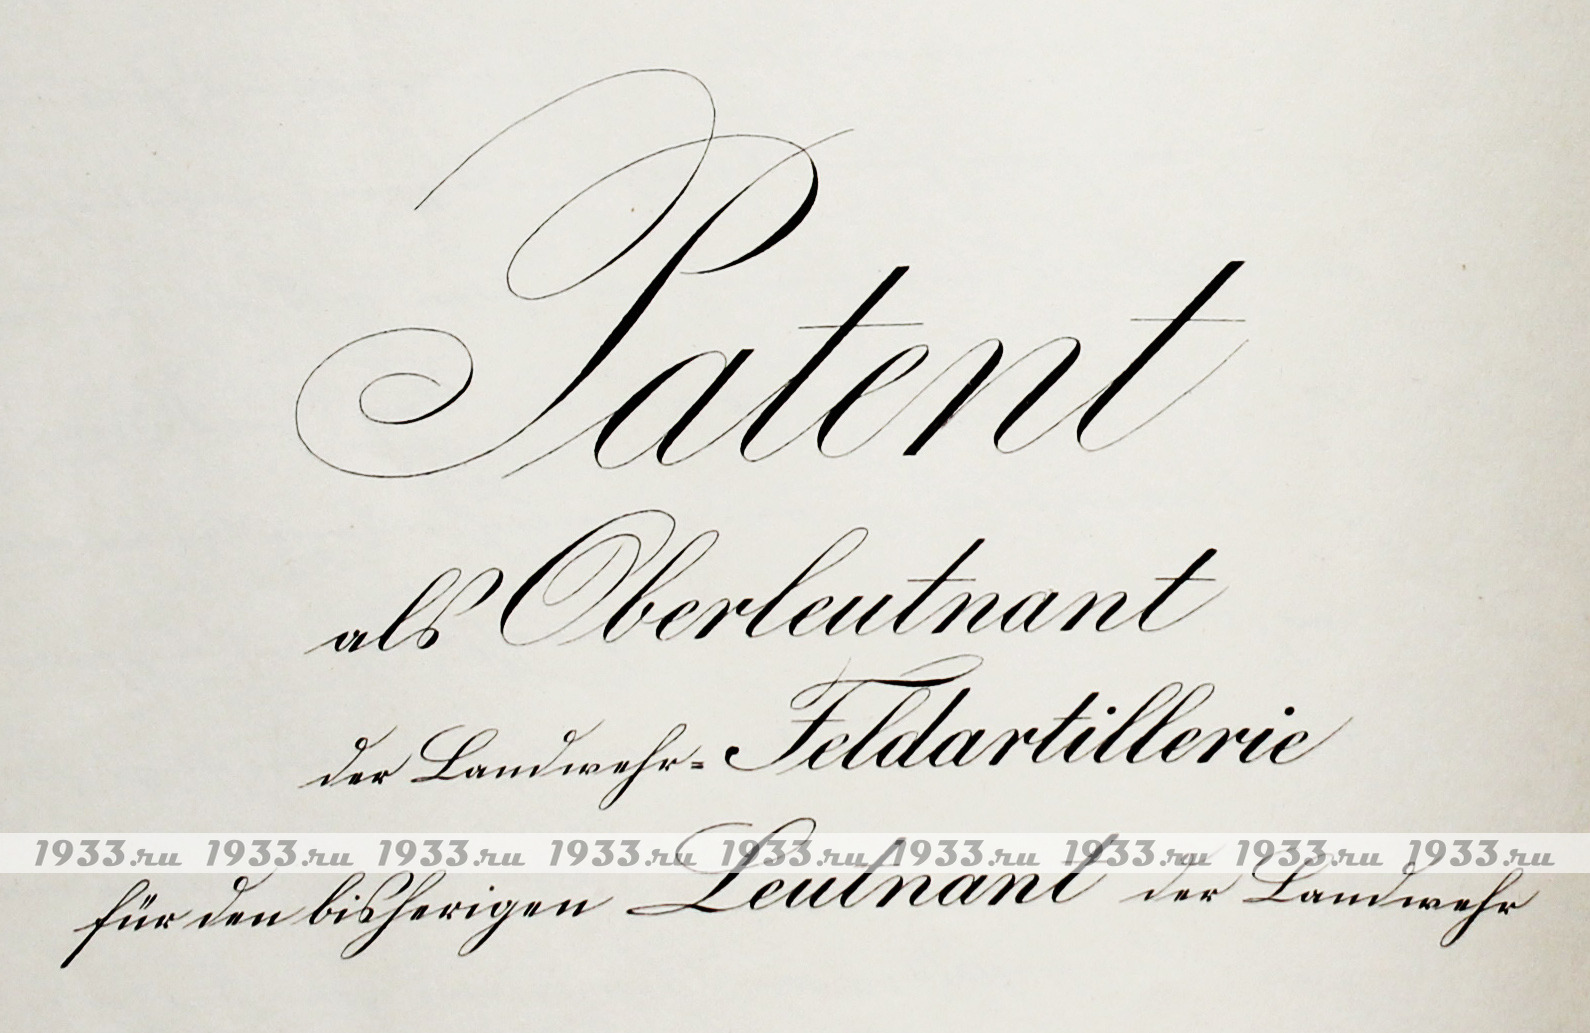 Patent
als Oberleutnant
der Landwehr=Feldartillerie
1933.ru 1933.ru 1933.ru 1933.ru 1933.ru 1933.ru 1933.ru 1933.ru 1933.ru
für den bisherigen Leutnant der Landwehr